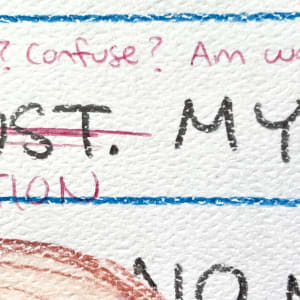 ? Confuse? Am w
ST. MY
TION
NO